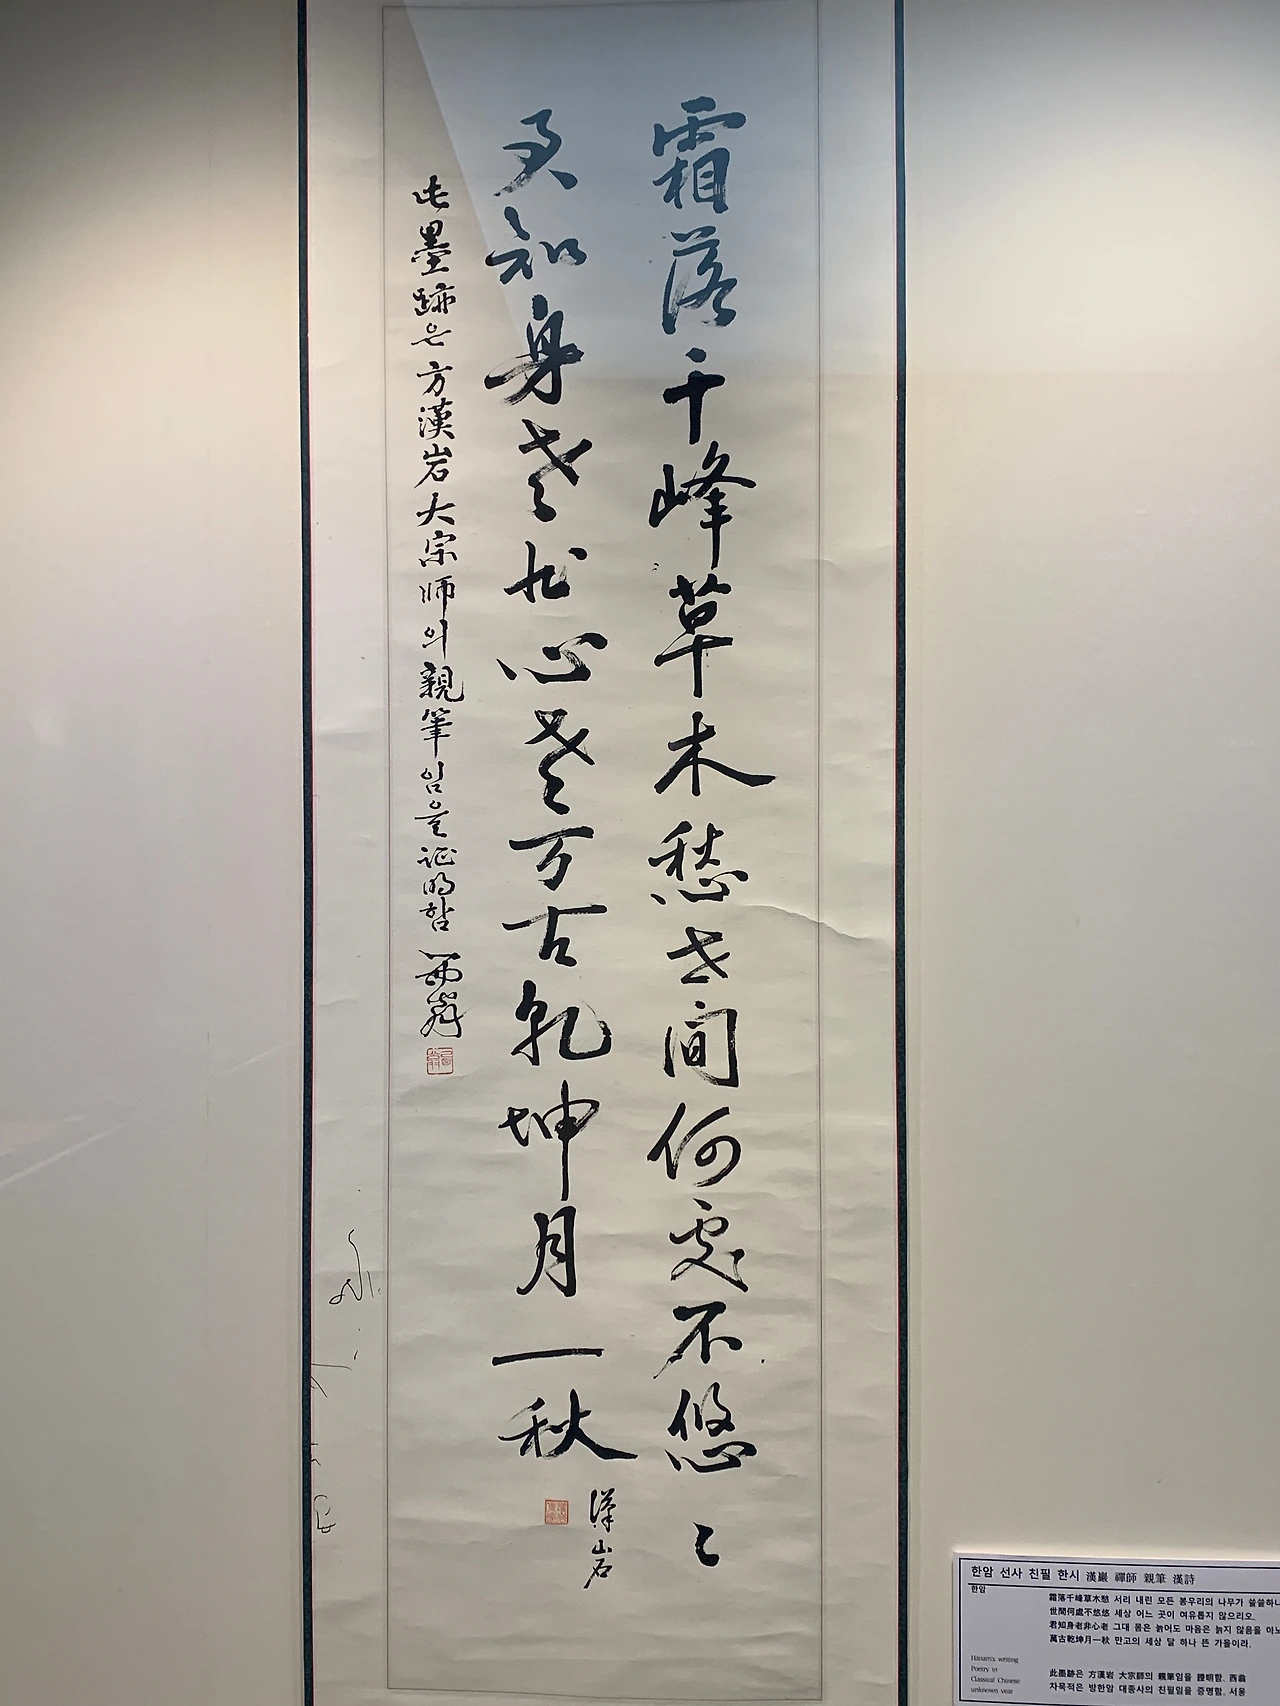 霜落千峰草木愁世間何處不悠々
君知身老非心老万古乾坤月一秋
漢岩
此墨跡은方漢岩大宗師의親筆임을証明함
한암 선사 친필 한시 漢巖 禪師 親筆 漢詩
한암
霜落千峰草木愁 서리 내린 모든 봉우리의 나무가 쓸쓸하니
世間何處不悠悠 세상 어느 곳이 여유롭지 않으리오.
君知身老非心老 그대 몸은 늙어도 마음은 늙지 않음을 아노
萬古乾坤月一秋 만고의 세상 달 하나 뜬 가을이라.
Hanam's writing
Poetry in
Classical Chinese
unknown year
此墨跡은 方漢岩 大宗師의 親筆임을 證明함. 西翁
차묵적은 방한암 대종사의 친필임을 증명함. 서옹